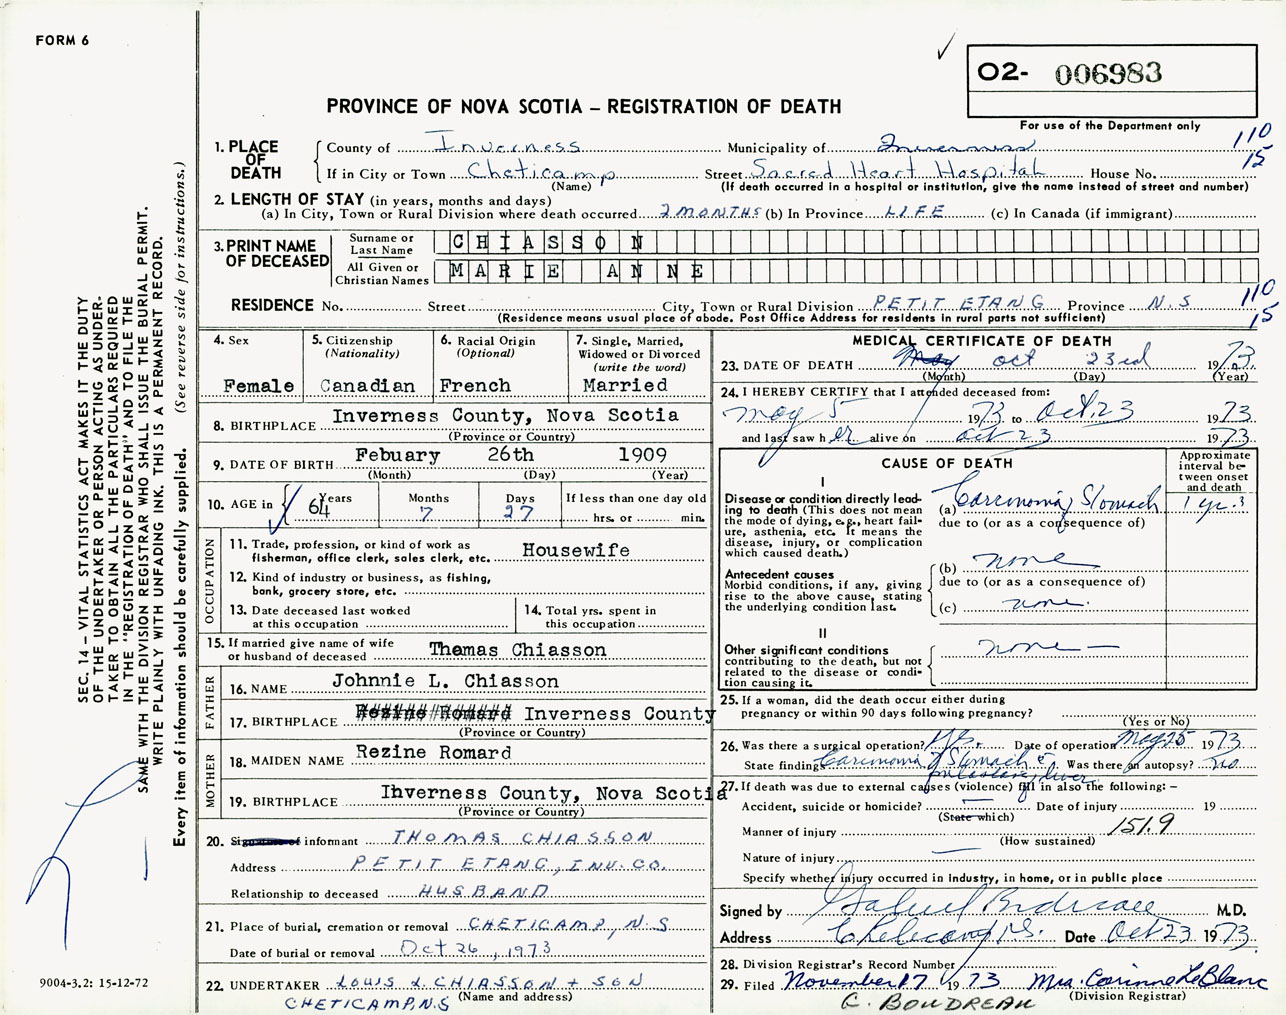 FORM 6
O2- 006983
For use of the Department only
PROVINCE OF NOVA SCOTIA – REGISTRATION OF DEATH
110
15
1. PLACE OF DEATH
County of Inverness Municipality of Inverness
If in City or Town Cheticamp (Name) Street Sacred Heart Hospital House No.
(If death occurred in a hospital or institution, give the name instead of street and number)
2. LENGTH OF STAY (in years, months and days)
(a) In City, Town or Rural Division where death occurred 2 MONTHS (b) In Province LIFE (c) In Canada (if immigrant)
3. PRINT NAME OF DECEASED
Surname or Last Name CHIASSON
All Given or Christian Names MARIE ANNE
RESIDENCE No. Street City, Town or Rural Division PETIT ETANG Province N.S
110
15
(Residence means usual place of abode. Post Office Address for residents in rural parts not sufficient)
4. Sex
Female
5. Citizenship (Nationality)
Canadian
6. Racial Origin (Optional)
French
7. Single, Married, Widowed or Divorced (write the word)
Married
8. BIRTHPLACE Inverness County, Nova Scotia
(Province or Country)
9. DATE OF BIRTH Febuary 26th 1909
(Month) (Day) (Year)
10. AGE in Years 64 Months 7 Days 27 If less than one day old
hrs. or min.
OCCUPATION
11. Trade, profession, or kind of work as fisherman, office clerk, sales clerk, etc. Housewife
12. Kind of industry or business, as fishing, bank, grocery store, etc.
13. Date deceased last worked at this occupation
14. Total yrs. spent in this occupation
15. If married give name of wife or husband of deceased Thomas Chiasson
FATHER
16. NAME Johnnie L. Chiasson
17. BIRTHPLACE Rezine Romard Inverness County
(Province or Country)
MOTHER
18. MAIDEN NAME Rezine Romard
19. BIRTHPLACE Inverness County, Nova Scotia
(Province or Country)
20. Signature of informant THOMAS CHIASSON
Address PETIT ETANG, INV. CO.
Relationship to deceased HUSBAND
21. Place of burial, cremation or removal CHETICAMP, N.S
Date of burial or removal Oct 26, 1973
22. UNDERTAKER LOUIS L. CHIASSON + SON
CHETICAMP, N.S (Name and address)
MEDICAL CERTIFICATE OF DEATH
23. DATE OF DEATH May Oct 23rd 1973
(Month) (Day) (Year)
24. I HEREBY CERTIFY that I attended deceased from:
May 5 1973 to Oct. 23 1973
and last saw her alive on Oct 23 1973
CAUSE OF DEATH
Approximate interval between onset and death
I
Disease or condition directly leading to death (This does not mean the mode of dying, e.g., heart failure, asthenia, etc. It means the disease, injury, or complication which caused death.)
(a) Carcinoma of Stomach 1 yr.?
due to (or as a consequence of)
Antecedent causes
Morbid conditions, if any, giving rise to the above cause, stating the underlying condition last.
(b) none
due to (or as a consequence of)
(c) none.
II
Other significant conditions
contributing to the death, but not related to the disease or condition causing it.
none –
25. If a woman, did the death occur either during pregnancy or within 90 days following pregnancy?
(Yes or No)
26. Was there a surgical operation? yes. Date of operation May 25 1973
State findings Carcinoma of Stomach liver Was there an autopsy? no
27. If death was due to external causes (violence) fill in also the following: –
Accident, suicide or homicide? – Date of injury 19
(State which)
Manner of injury 151.9
(How sustained)
Nature of injury –
Specify whether injury occurred in Industry, in home, or in public place
Signed by Gabriel Boudreau M.D.
Address Cheticamp N.S. Date Oct 23 1973
28. Division Registrar's Record Number
29. Filed November 17 1973 Mrs. Corinne LeBlanc
(Division Registrar)
C. BOUDREAU
SEC. 14 – VITAL STATISTICS ACT MAKES IT THE DUTY
OF THE UNDERTAKER OR PERSON ACTING AS UNDER-
TAKER TO OBTAIN ALL THE PARTICULARS REQUIRED
IN THE "REGISTRATION OF DEATH" AND TO FILE THE
SAME WITH THE DIVISION REGISTRAR WHO SHALL ISSUE THE BURIAL PERMIT.
WRITE PLAINLY WITH UNFADING INK. THIS IS A PERMANENT RECORD.
Every item of information should be carefully supplied. (See reverse side for instructions.)
9004-3.2: 15-12-72